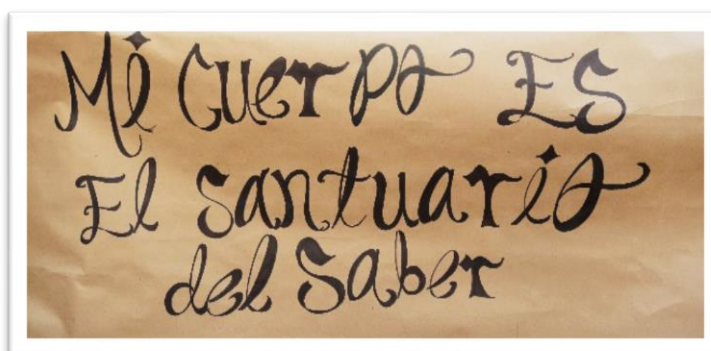 Mi CUerpo ES
El santuario
del Saber